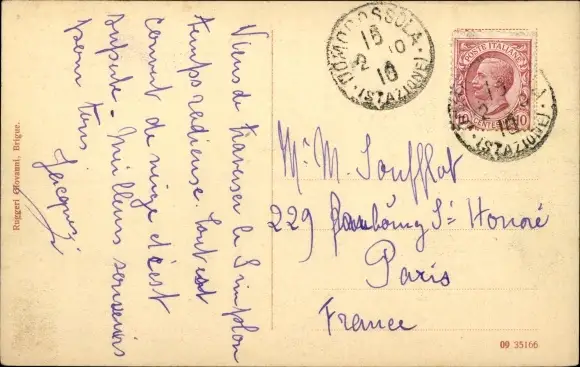 Viens de traverser le Simplon
temps radieuse. Tout est
couvert de neige et c'est
superbe. Meilleurs souvenirs
pour tous.
Jacques
Ruggeri Giovanni, Brigue.
DOMODOSSOLA
15
2 10
10
(STAZIONE)
POSTE ITALIANE
10
15
10
(STAZIONE)
Mr M. Soufflot
229 Faubourg St Honoré
Paris
France
09 35166